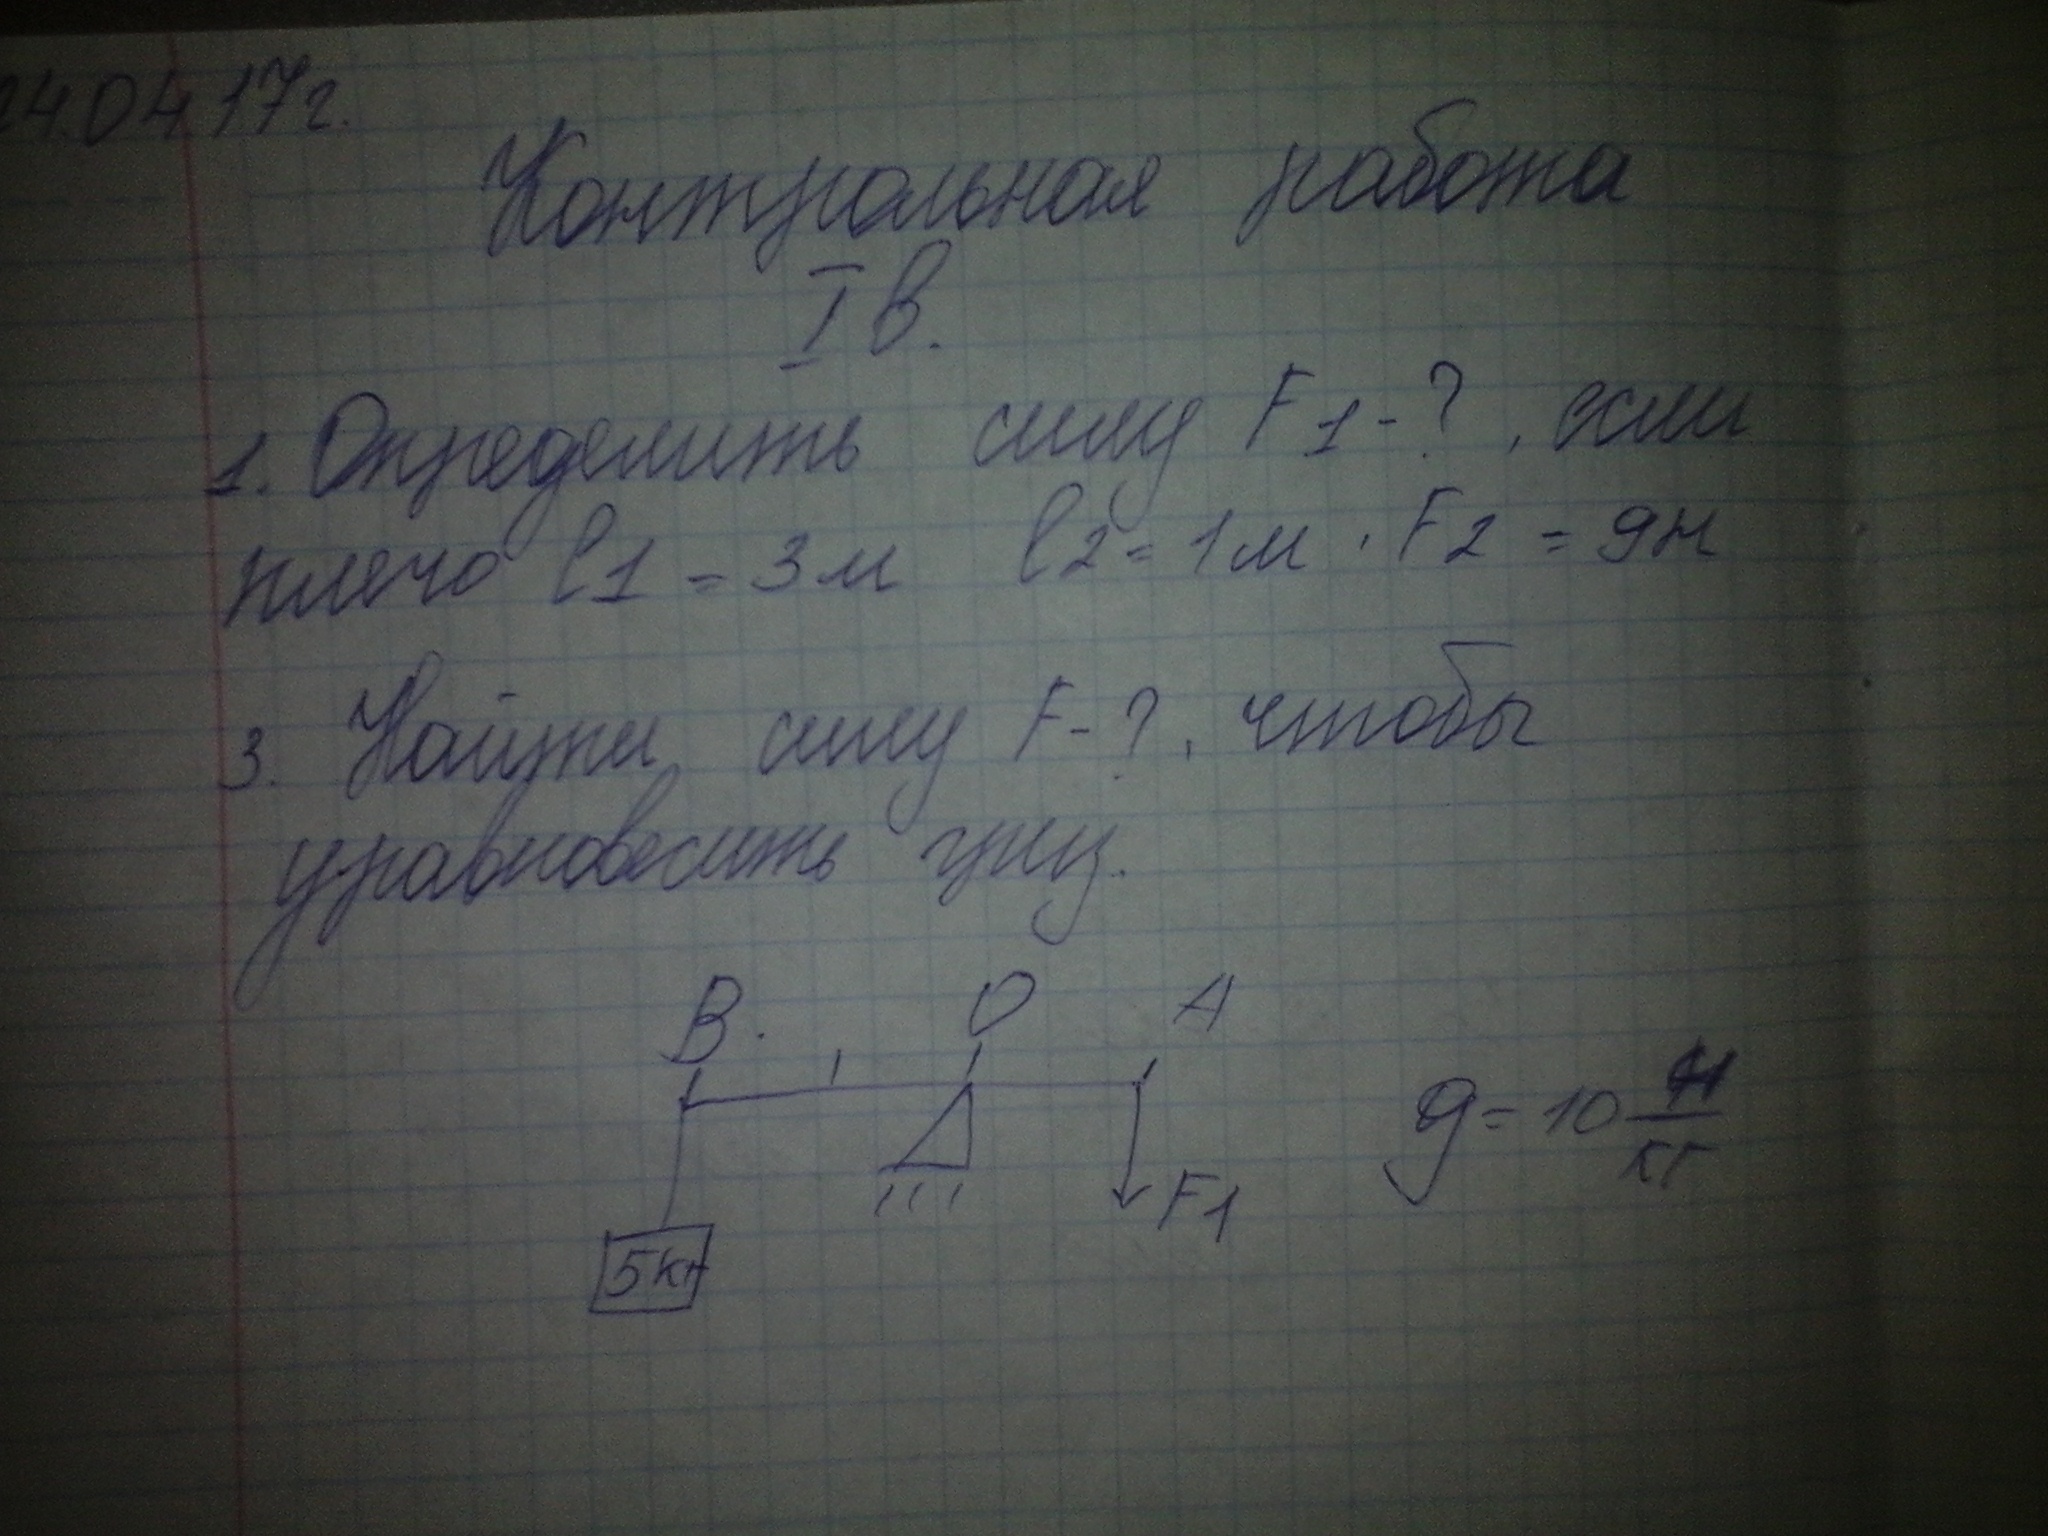 24.04.17г.
Контрольная работа
I в.
1. Определить силу F1-?, если
плечо l1 = 3м l2 = 1м, F2 = 9н
3. Найти силу F-?, чтобы
уравновесить груз.
B. O A
g = 10 Н/кг
F1
5кг